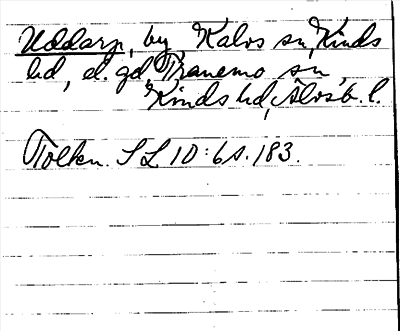 Uddarp, by Kalvs sn, Kinds
hd, el. gd, Tranemo sn
Kinds hd, Älvsb. l.
Tolkn. SL 10:6 s. 183.